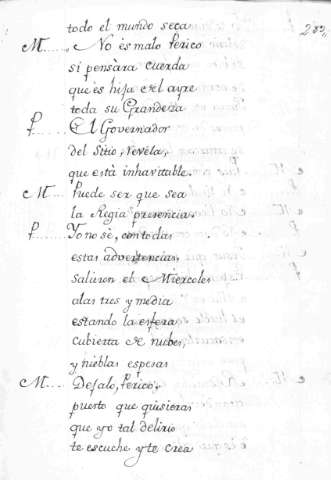 todo el mundo seca
203,
M...... No es malo Perico
si pensàra cuerda
que es hija del ayre
toda su Grandeza
P...... El Governador
del Sitio, revela,
que està inhavitable.
M..... Puede ser que sea
la Regia presencia.
P..... Yo no sè, con todas
estas advertencias,
salieron el Miercoles
a las tres y media
estando la esfera
cubierta de nubes,
y nieblas espesas
M..... Dejalo, Perico,
puesto que quisieras
que yo tal delirio
te escuche y te crea